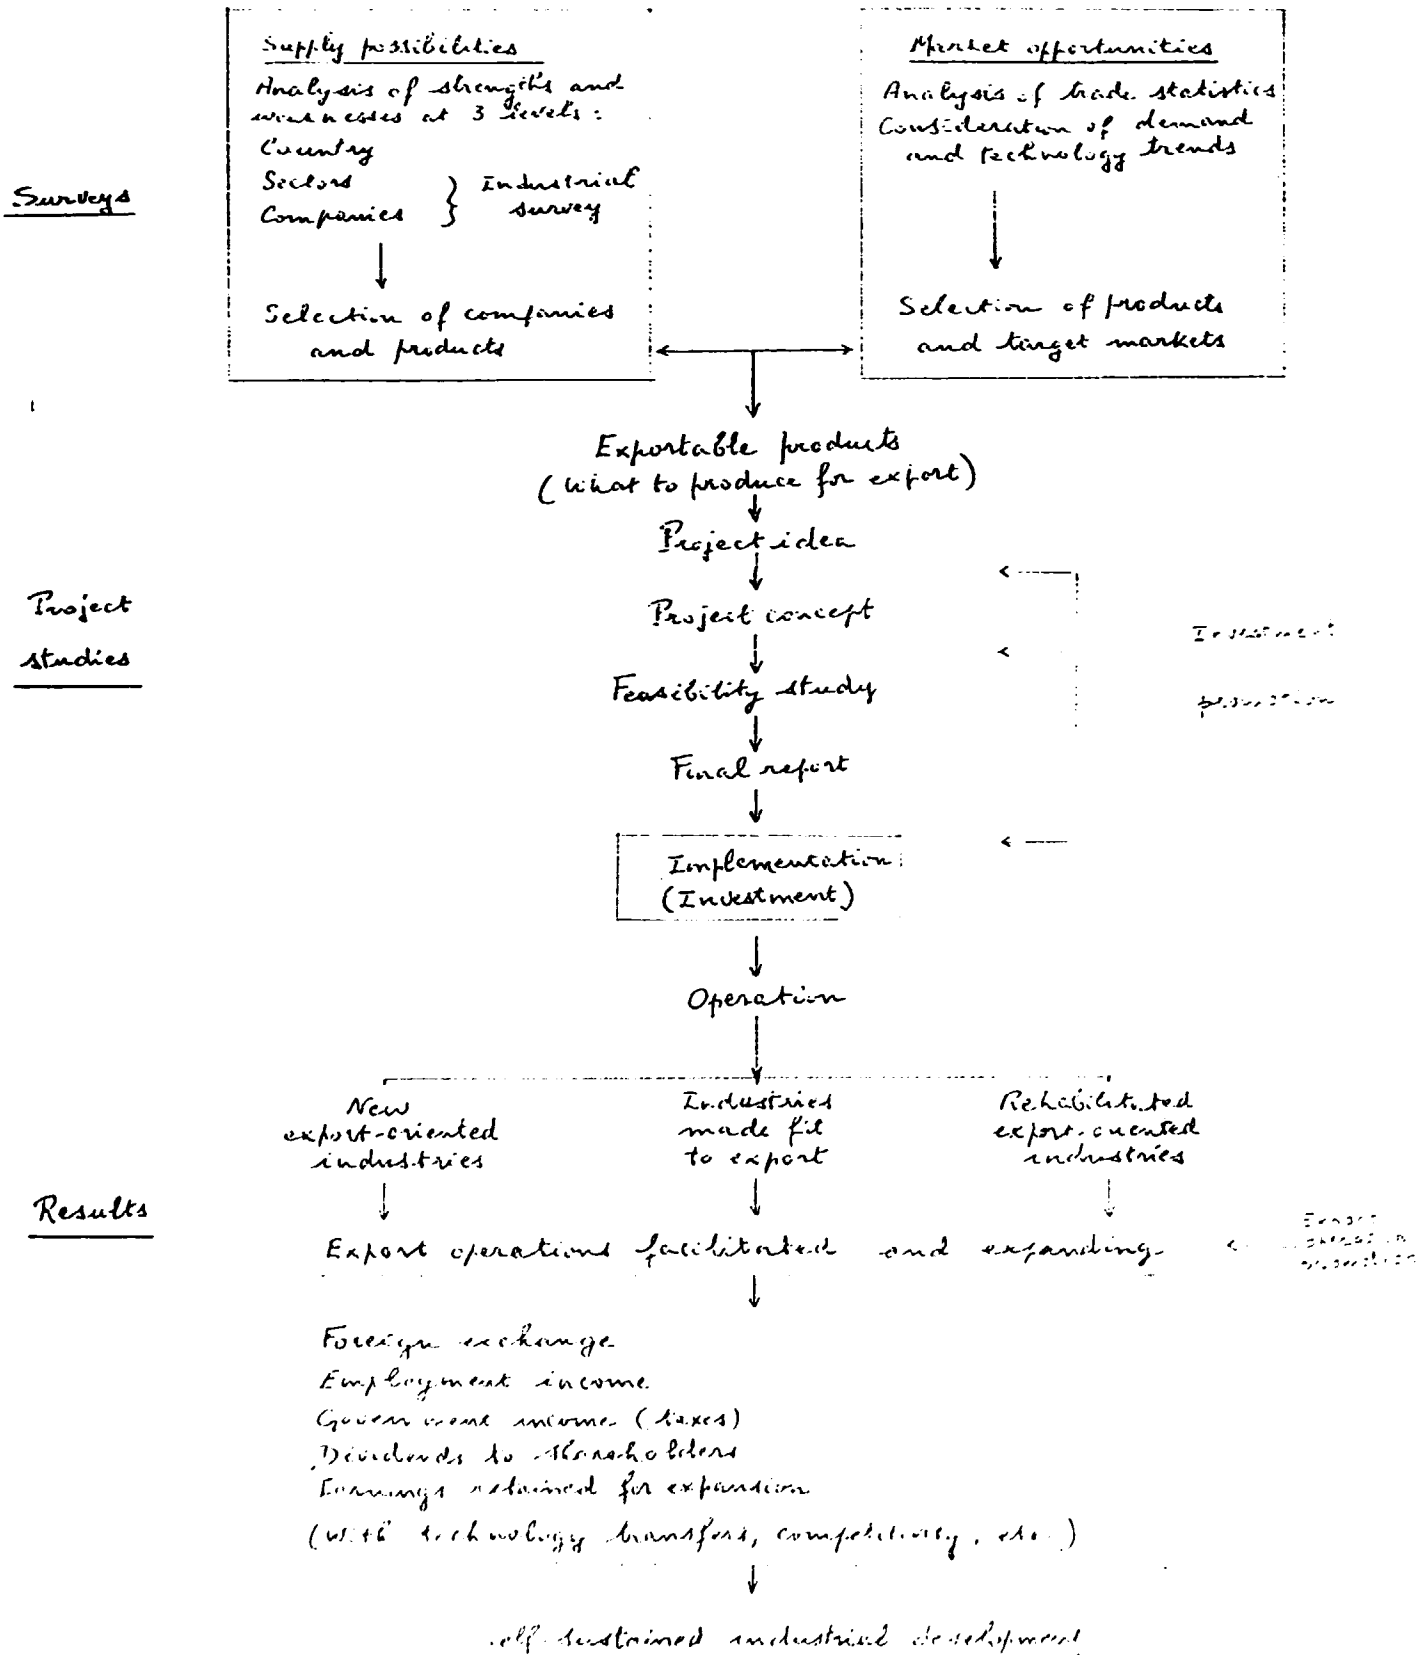 Supply possibilities
Analysis of strengths and
weaknesses at 3 levels:
Country
Sectors
Companies
} Industrial
survey
Selection of companies
and products
Market opportunities
Analysis of trade statistics
Consideration of demand
and technology trends
Selection of products
and target markets
Surveys
Exportable products
(What to produce for export)
Project idea
Project concept
Feasibility study
Final report
Project
studies
Investment
promotion
Implementation
(Investment)
Operation
New
export-oriented
industries
Industries
made fit
to export
Rehabilitated
export-oriented
industries
Results
Export operations facilitated and expanding
Export
promotion
Foreign exchange
Employment income
Government income (taxes)
Dividends to shareholders
Earnings retained for expansion
(With technology transfers, competitivity, etc.)
self-sustained industrial development